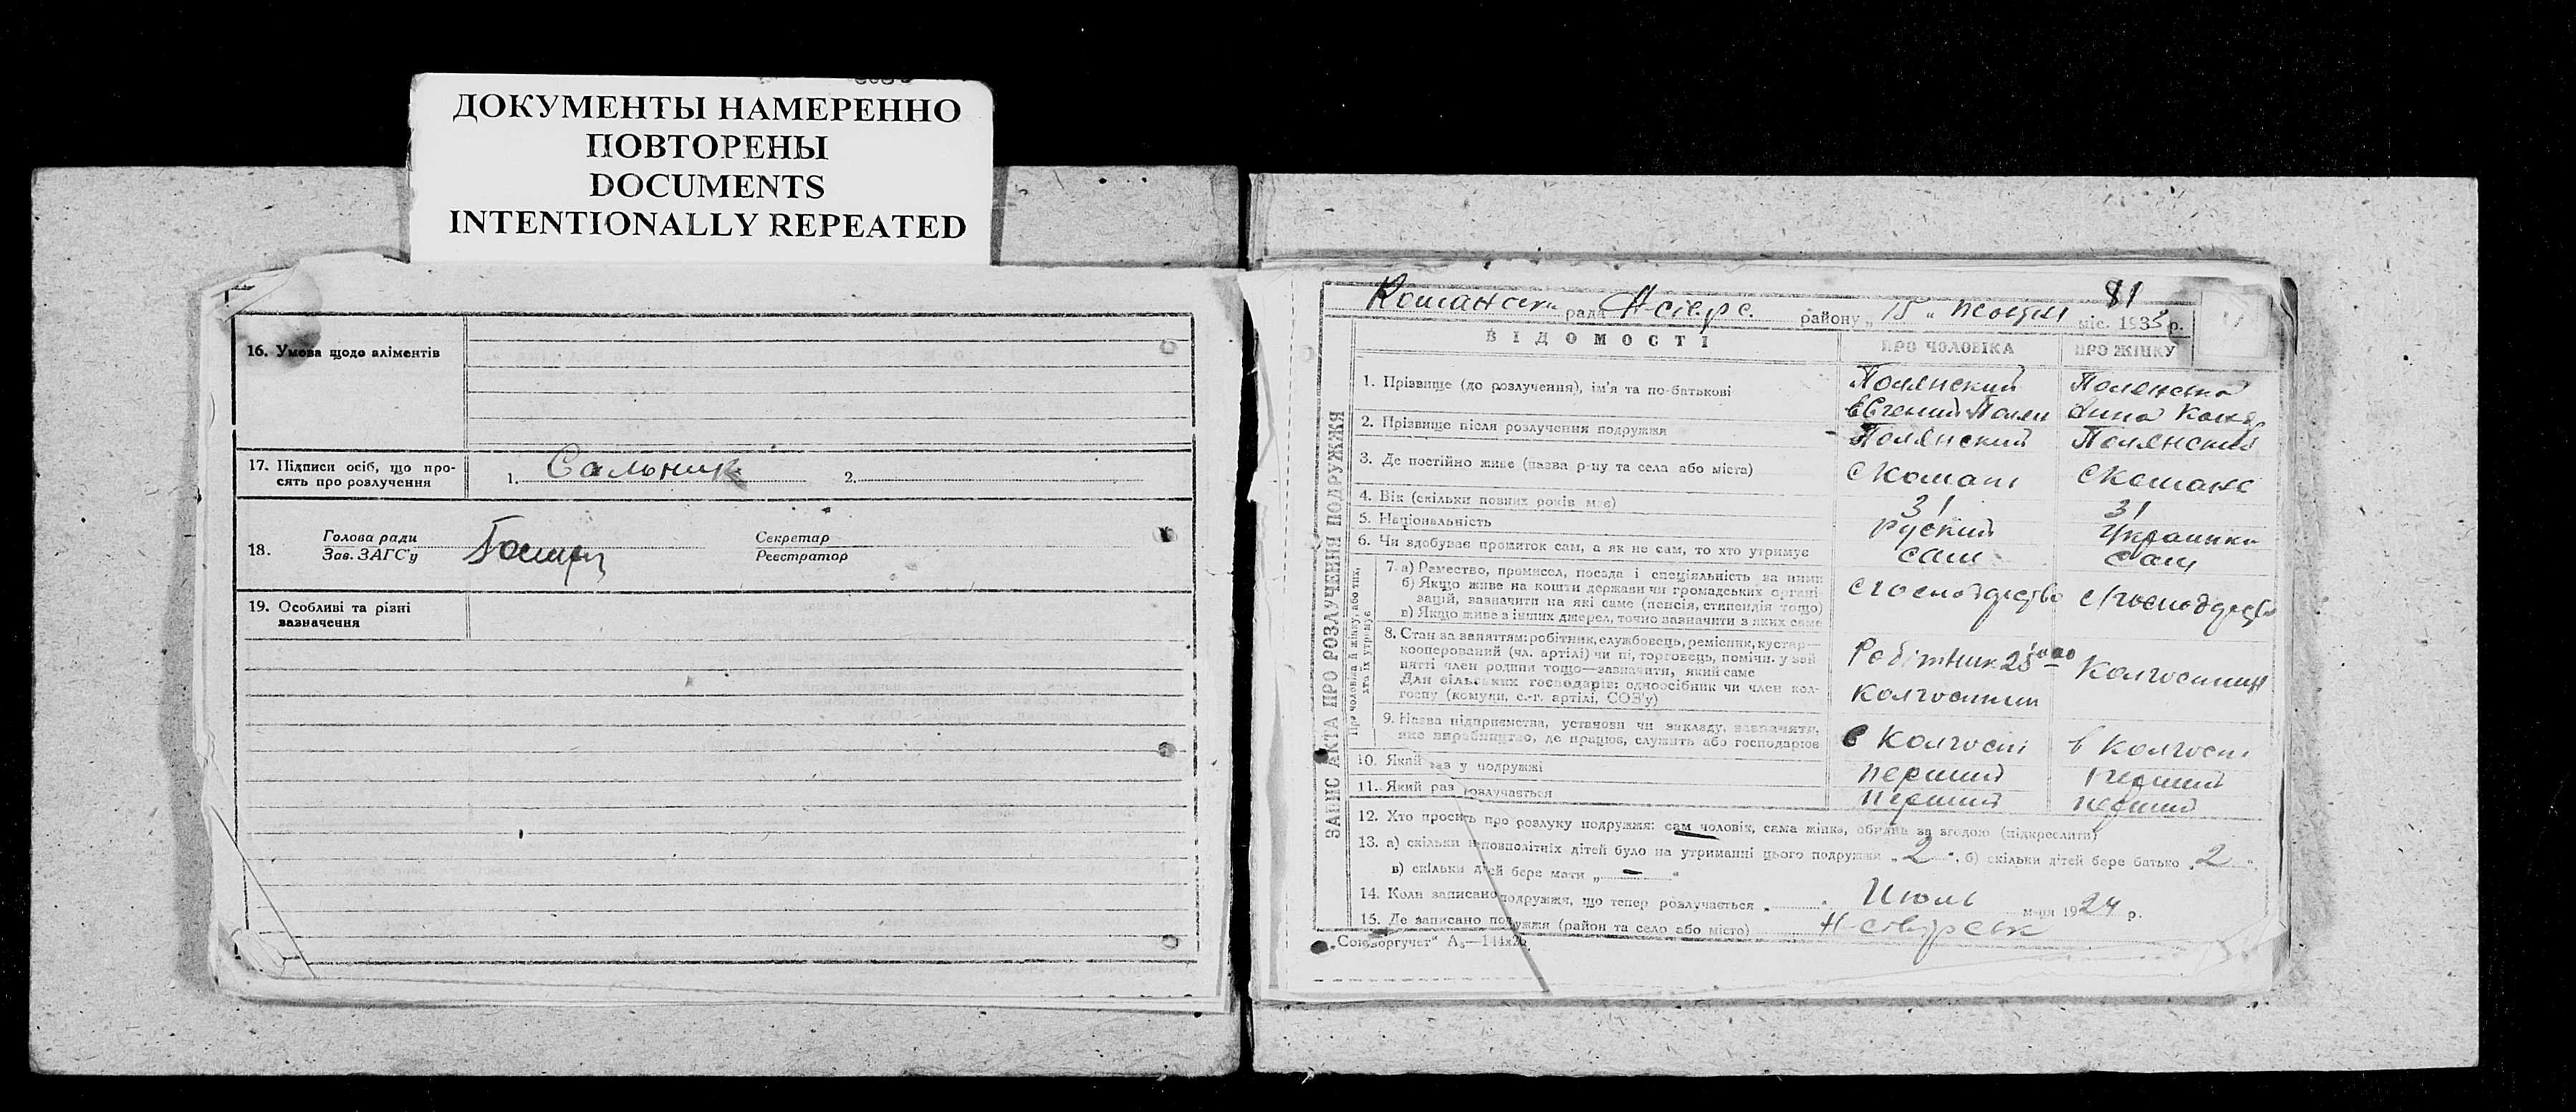 ДОКУМЕНТЫ НАМЕРЕННО
ПОВТОРЕНЫ
DOCUMENTS
INTENTIONALLY REPEATED
16. Умова щодо аліментів
17. Підписи осіб, що про-
сять про розлучення
1. Сальник 2.
18. Голова ради
Зав. ЗАГС'у
Секретар
Реєстратор
19. Особливі та різні
зазначення
81
рада району „15“ міс. 1933 р.
ЗАПИС АКТА ПРО РОЗЛУЧЕННЯ ПОДРУЖЖЯ
ВІДОМОСТІ ПРО ЧОЛОВІКА ПРО ЖІНКУ
1. Прізвище (до розлучення), ім'я та по-батькові
Полянский
Евгений
Анна
2. Прізвище після розлучення подружжя
Полянский
3. Де постійно живе (назва р-ну та села або міста)
4. Вік (скільки повних років має) 31 31
5. Національність руский Украинка
6. Чи здобуває прожиток сам, а як не сам, то хто утримує сам сам
Про чоловіка й жінку, або тих,
хто їх утримує
7. а) Ремество, промисел, посада і спеціяльність за ними
б) Якщо живе на кошти держави чи громадських органі-
зацій, зазначити на які саме (пенсія, стипендія тощо)
в) Якщо живе з інших джерел, точно зазначити з яких саме
8. Стан за заняттям: робітник, службовець, ремісник, кустар—
кооперований (чл. артілі) чи ні, торговець, помічн. у зай
нятті член родини тощо—зазначити, який саме
Для сільських господарів: одноосібник чи член кол-
госпу (комуни, с.-г. артілі, СОЗ'у)
Робітник
колгоспник
9. Назва підприємства, установи чи закладу, зазначити,
яке виробництво, де працює, служить або господарює
в колгоспі в колгоспі
10. Який раз у подружжі перший перший
11. Який раз розлучається перший перший
12. Хто просить про розлуку подружжя: сам чоловік, сама жінка, обидва за згодою (підкреслити)
13. а) скільки неповнолітніх дітей було на утриманні цього подружжя „2“, б) скільки дітей бере батько „2“,
в) скільки дітей бере мати „—“
14. Коли записано подружжя, що тепер розлучається Июль м-ця 1924 р.
15. Де записано подружжя (район та село або місто)
„Союзоргучет“